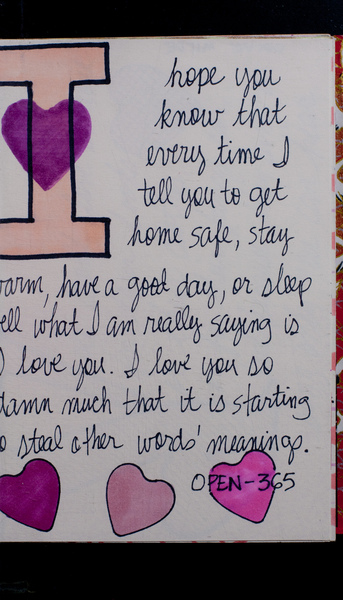 I
hope you
know that
every time I
tell you to get
home safe, stay
warm, have a good day, or sleep
well what I am really saying is
I love you. I love you so
damn much that it is starting
to steal other words' meanings.
OPEN-365